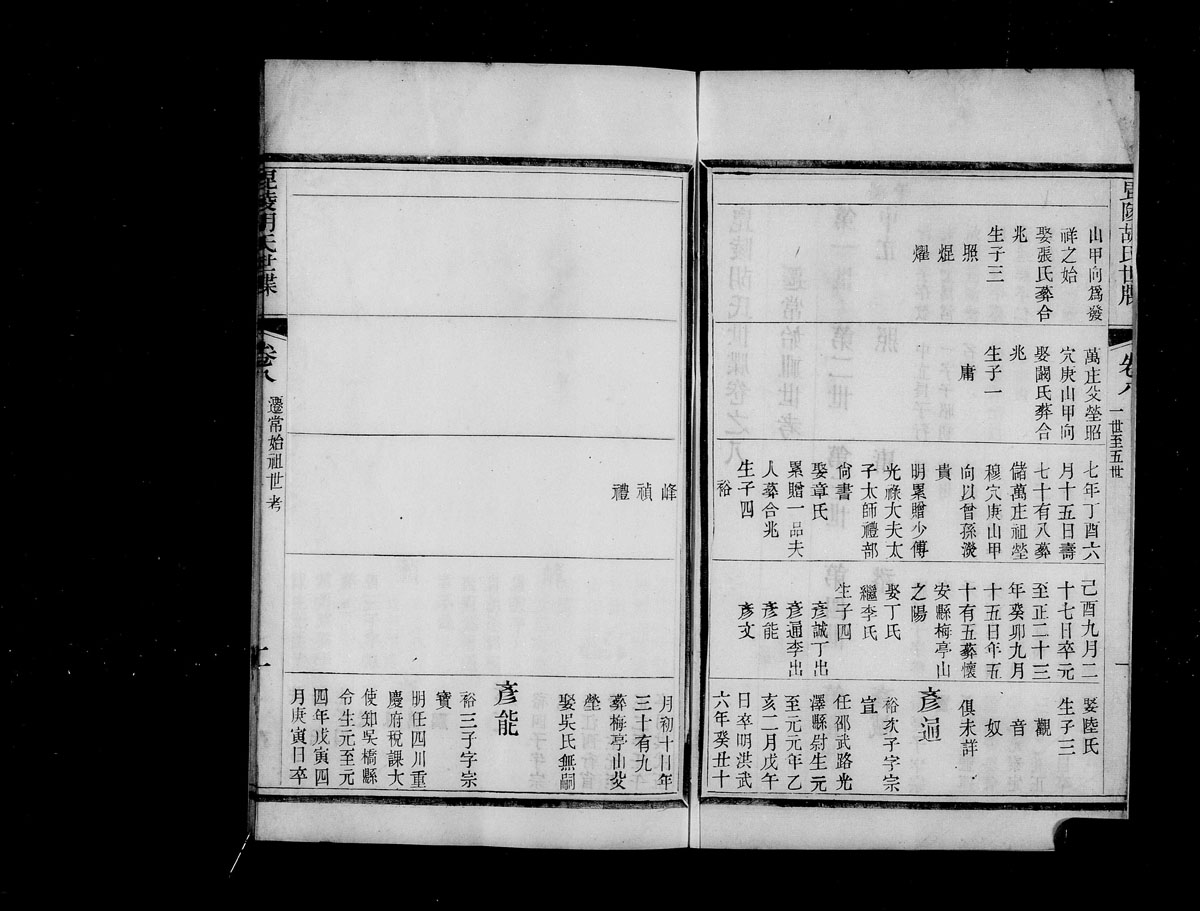 毘陵胡氏世牒
卷八
一世至五世
山甲向爲發
祥之始
娶張氏葬合
兆
生子三
照
焜
燿
萬庄父塋昭
穴庚山甲向
娶闕氏葬合
兆
生子一
庸
七年丁酉六
月十五日壽
七十有八葬
儲萬庄祖塋
穆穴庚山甲
向以曾孫濙
貴
明累贈少傅
光祿大夫太
子太師禮部
尙書
娶章氏
累贈一品夫
人葬合兆
生子四
裕
己酉九月二
十七日卒元
至正二十三
年癸卯九月
十五日年五
十有五葬懷
安縣梅亭山
之陽
娶丁氏
繼李氏
生子四
彥誠丁出
彥通李出
彥能
彥文
娶陸氏
生子三
觀
音
奴
俱未詳
彥通
裕次子字宗
宣
任邵武路光
澤縣尉生元
至元元年乙
亥二月戊午
日卒明洪武
六年癸丑十
峰
禎
禮
月初十日年
三十有九
葬梅亭山父
塋
娶吳氏無嗣
彥能
裕三子字宗
寶
明任四川重
慶府稅課大
使知吳橋縣
令生元至元
四年戊寅四
月庚寅日卒
毘陵胡氏世牒
卷八
遷常始祖世考
二